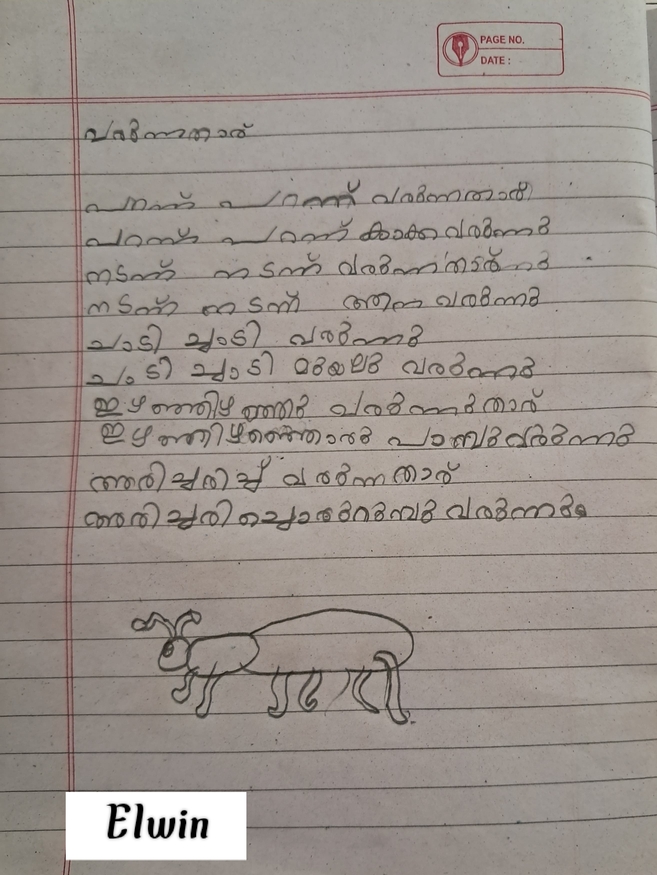 PAGE NO.
DATE :
വരുന്നതാര്
പറന്ന് പറന്ന് വരുന്നതാര്
പറന്ന് പറന്ന് കാക്ക വരുന്നു
നടന്ന് നടന്ന് വരുന്നതാര്
നടന്ന് നടന്ന് വരുന്നു
ചാടി ചാടി വരുന്നു
ചാടി ചാടി മുയലു വരുന്നു
ഇഴഞ്ഞിഴഞ്ഞു വരുന്നുതാര്
ഇഴഞ്ഞിഴഞ്ഞൊരു പാമ്പുവരുന്നു
അരിച്ചരിച്ച് വരുന്നതാര്
അരിച്ചരിച്ചൊരുറുമ്പു വരുന്നു
Elwin